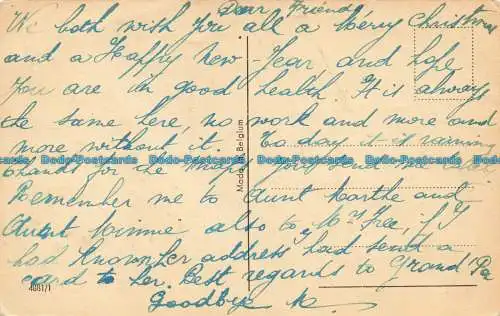 Dear Friend
We both wish you all a Merry Christmas
and a Happy New-Year, and hope
You are in good health. It is always
the same here, no work and more and
more without it. To day it is raining
thanks for the you send
Remember me to Aunt Marthe and
Aunt Minnie also to Free, if I
had known her address had send a
card to her. Best regards to Grand Pa
Goodbye
Made in Belgium
4081/1
Dodo-Postcards Dodo-Postcards Dodo-Postcards Dodo-Postcards Dodo-Postcards